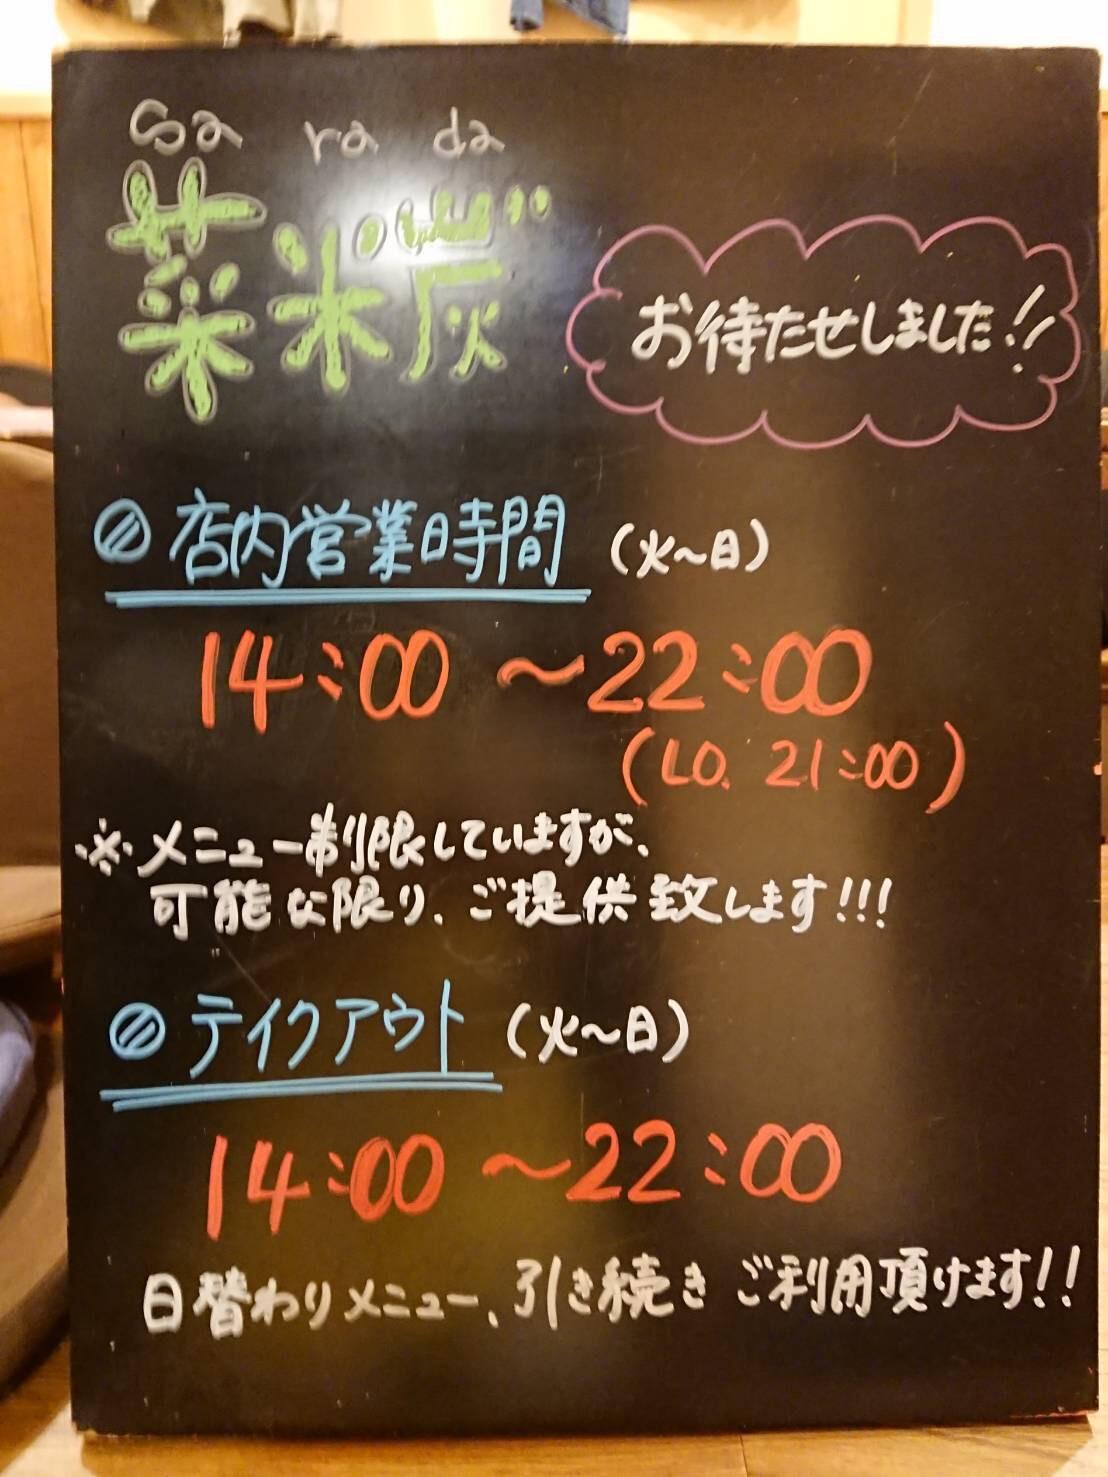 Sa ra da
菜米灰
お待たせしました!!
店内営業時間 (火~日)
14:00 ~22:00
(LO. 21:00)
※メニュー制限していますが、
可能な限り、ご提供致します!!!
テイクアウト (火~日)
14:00 ~22:00
日替わりメニュー、引き続きご利用頂けます!!